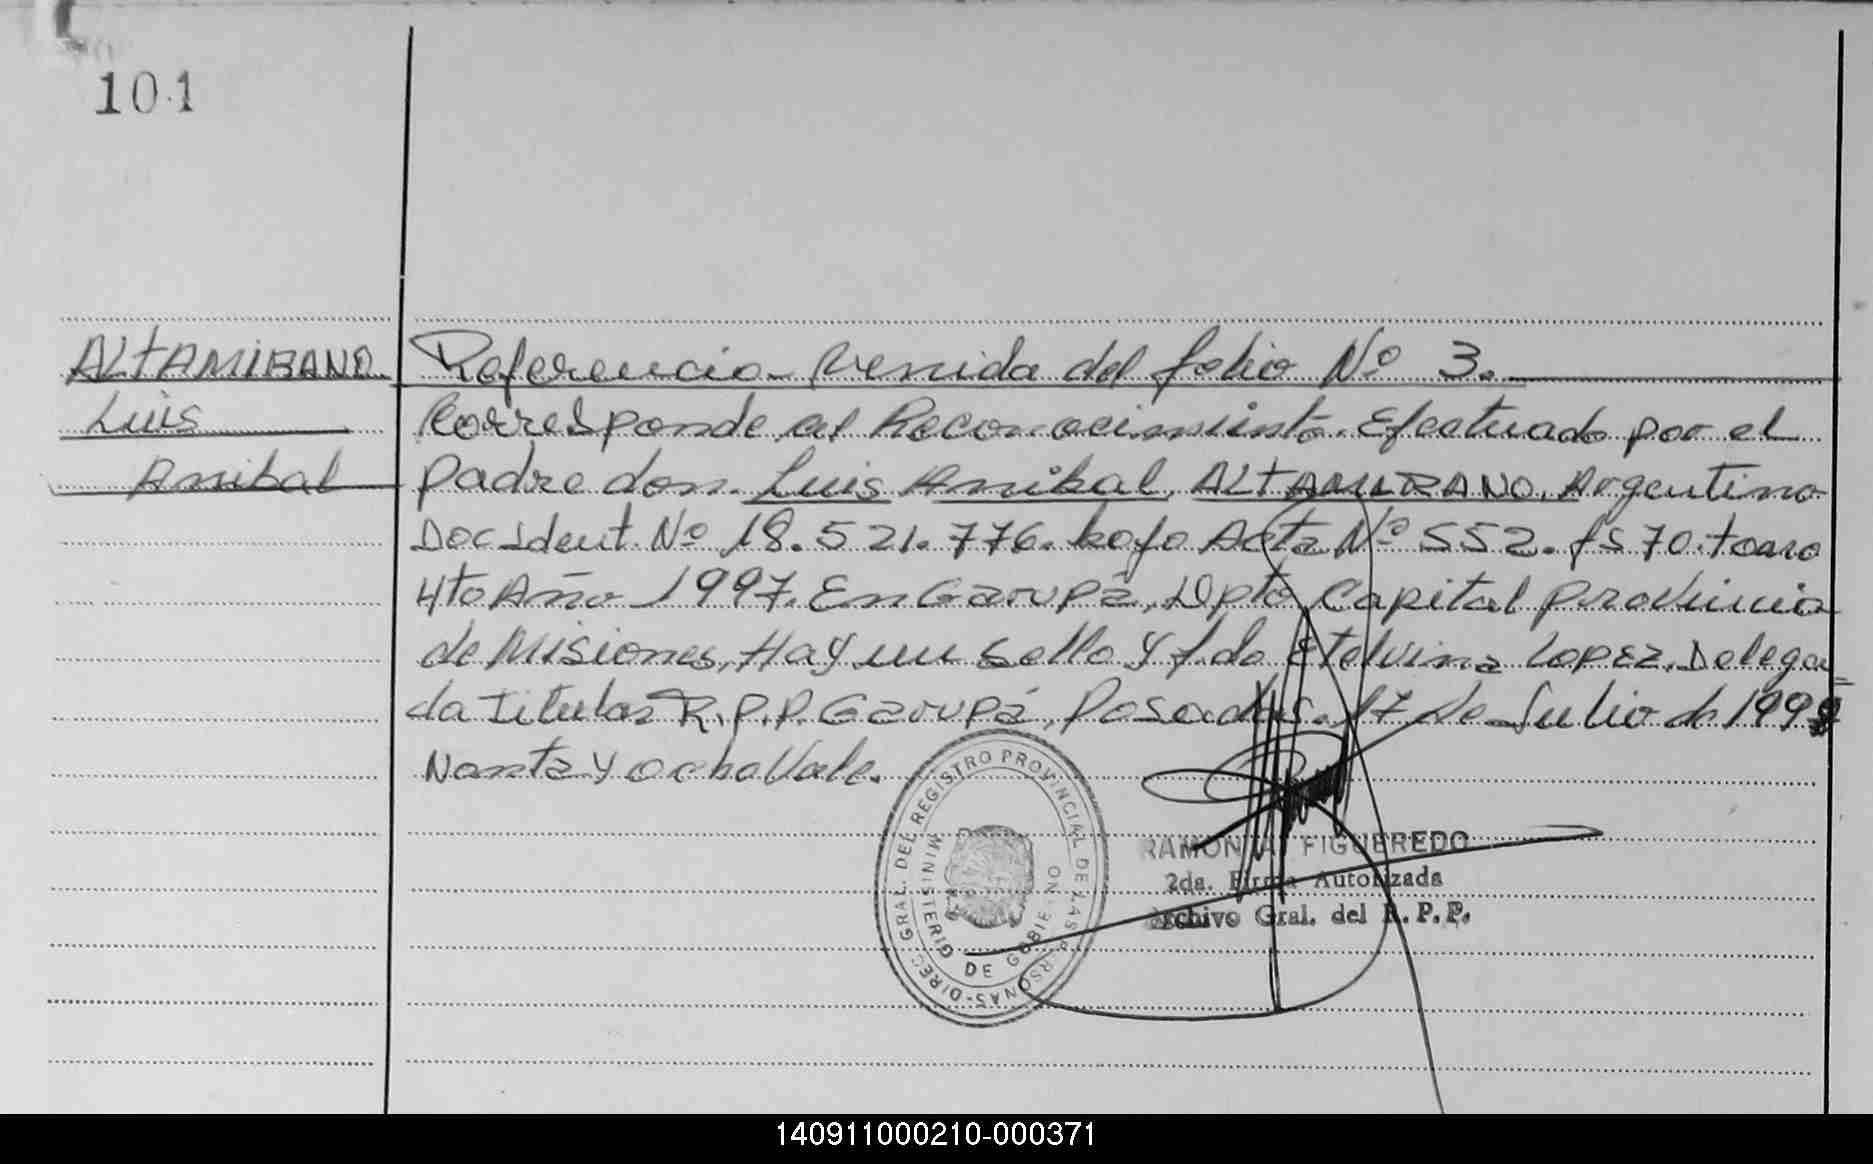 101
ALTAMIRANO
Luis
Anibal
Referencia venida del folio Nº 3.
Corresponde al Reconocimiento Efectuado por el
padre don Luis Anibal ALTAMIRANO, Argentino
Doc Ident. Nº 18.521.776. bajo Acta Nº 552. fs 70. tomo
4to Año 1997. En Garupá, Dpto Capital Provincia
de Misiones, Hay un Sello y fdo Etelvina Lopez, Delega
da titular R.P.P. Garupá, Posadas. 17 de Julio de 1998
Nonta y ocho Vale.
DIREC. GRAL. DEL REGISTRO PROVINCIAL DE LAS PERSONAS-
MINISTERIO DE GOBIERNO
RAMON A. FIGUEREDO
2da. Firma Autorizada
Archivo Gral. del R.P.P.
140911000210-000371